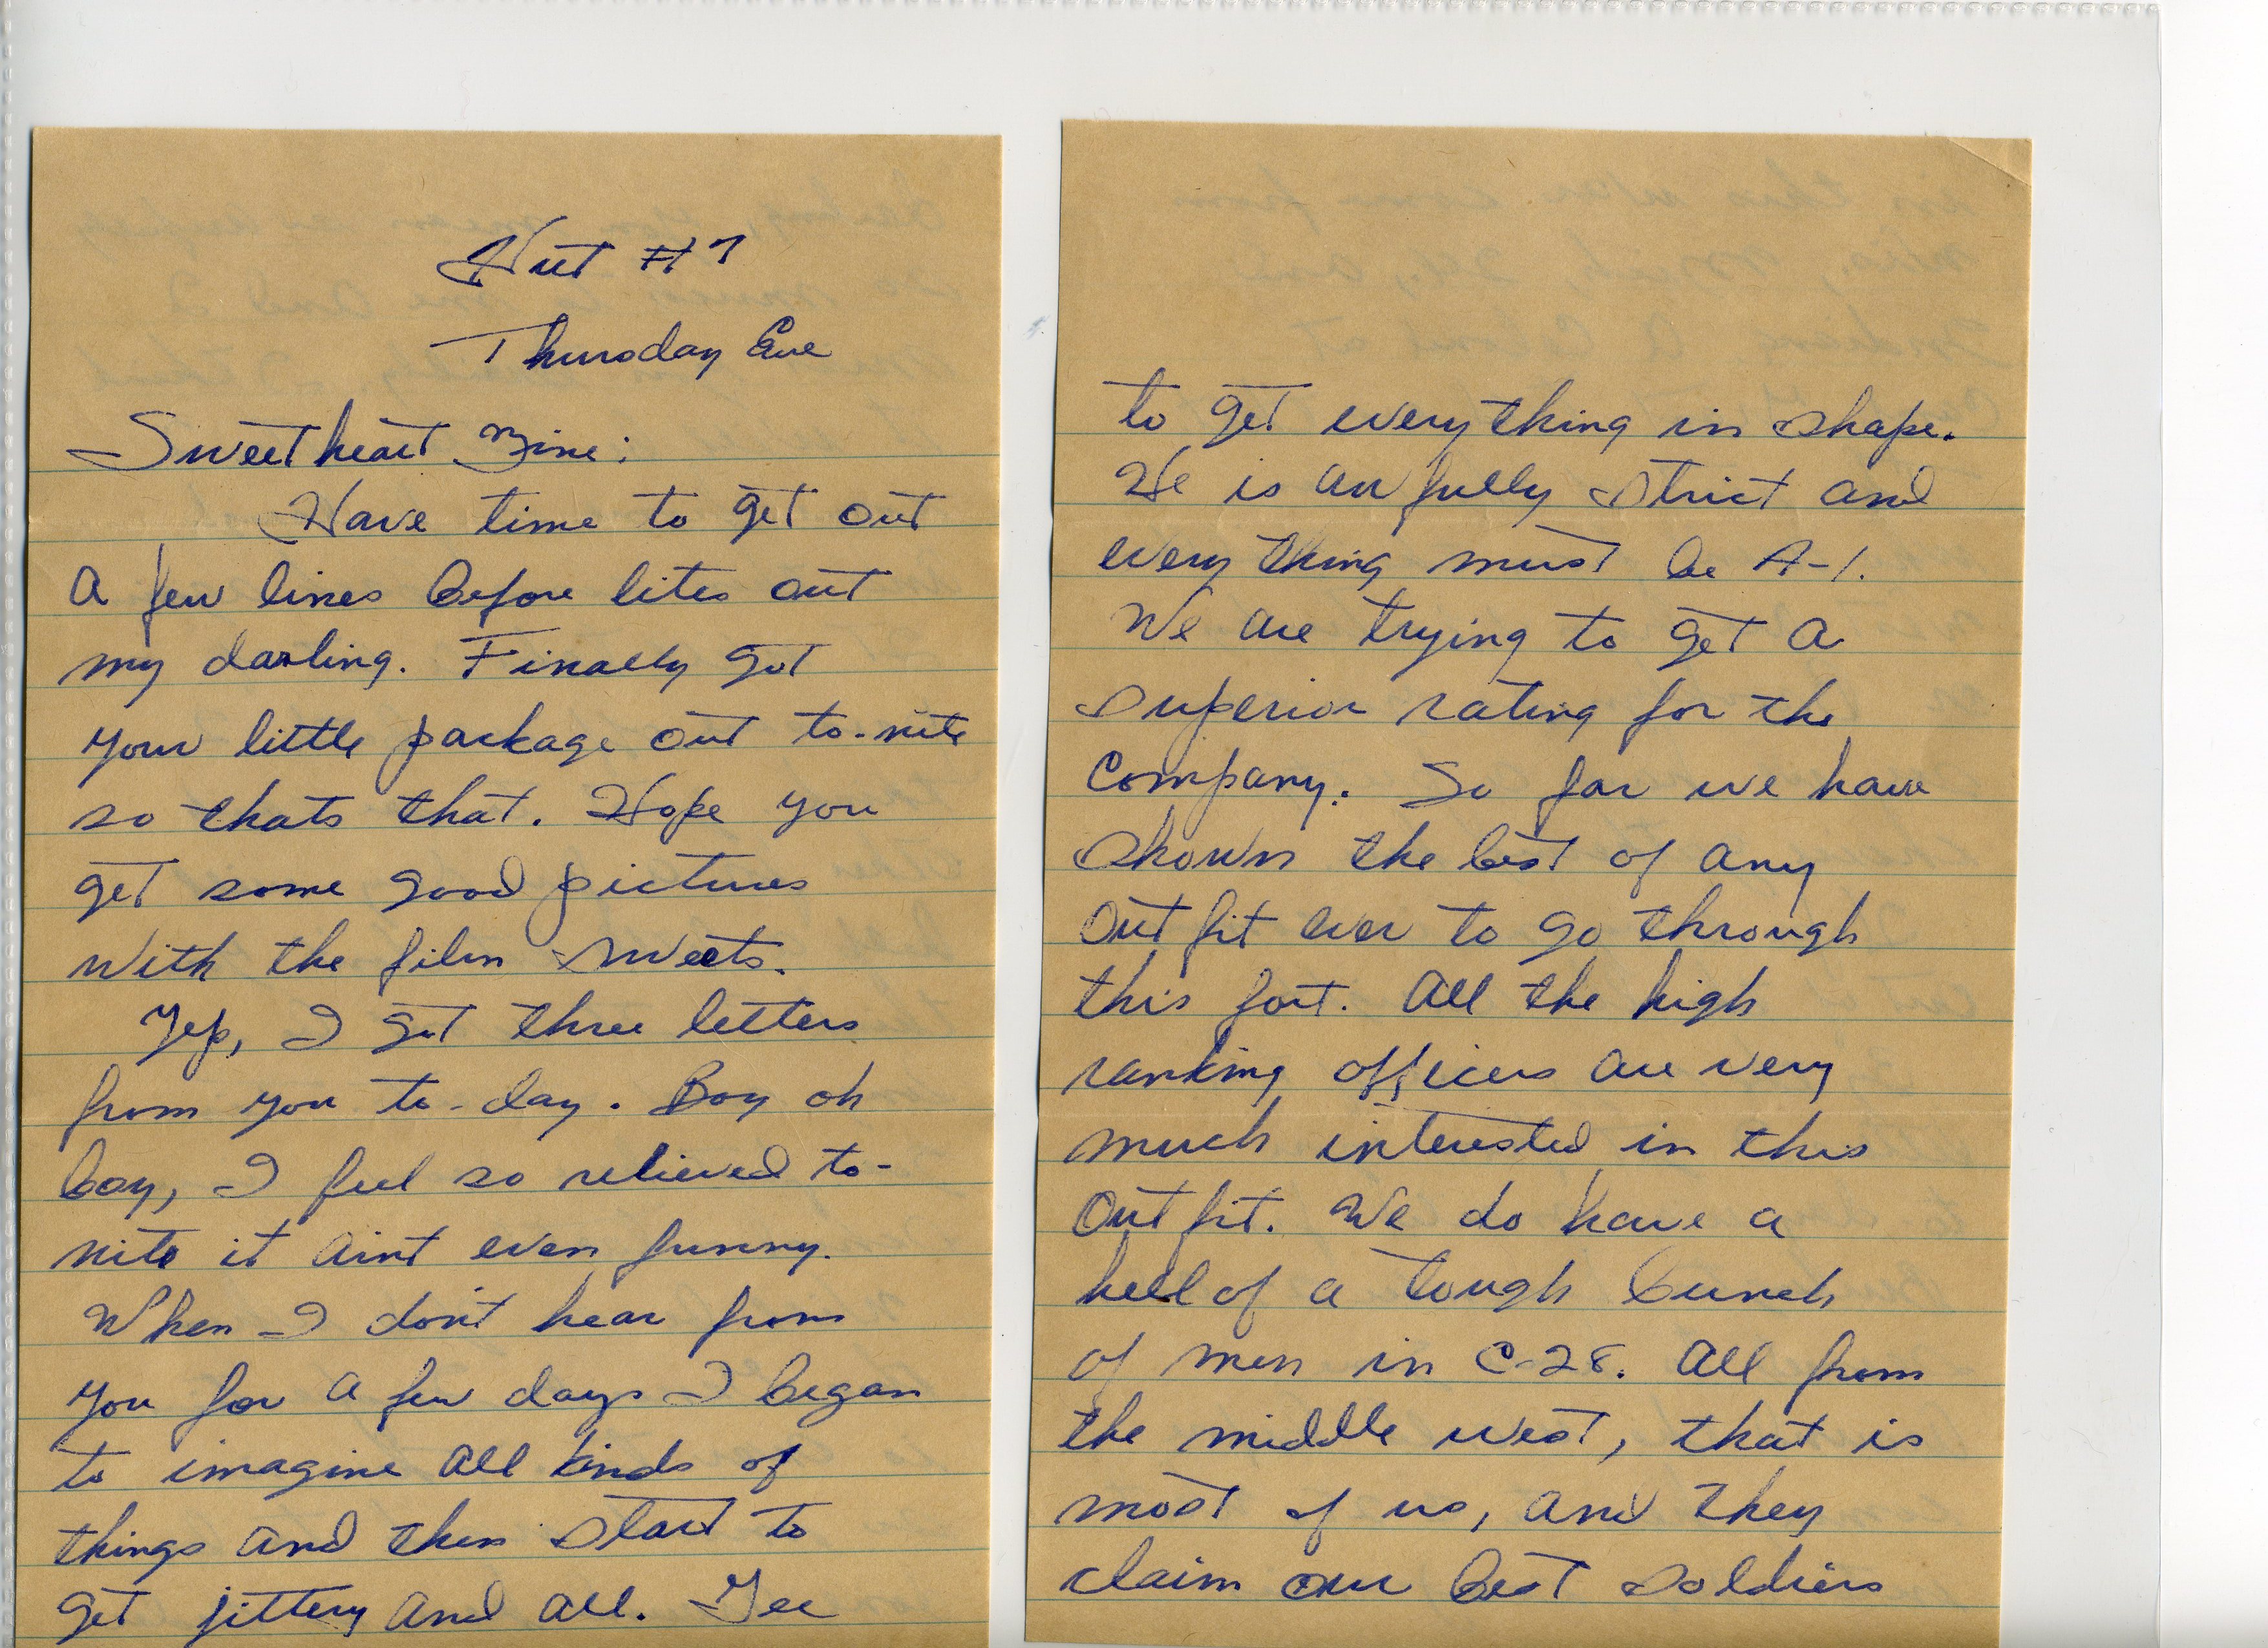 Hut #7
Thursday Eve
Sweetheart Mine:
Have time to get out
a few lines before lites out
my darling. Finally got
your little package out to-nite
so thats that. Hope you
get some good pictures
with the film sweets.
Yep, I got three letters
from you to-day. Boy oh
boy, I feel so relieved to-
nite it aint even funny.
When I don't hear from
you for a few days I began
to imagine all kinds of
things and then start to
get jittery and all. Gee
to get everything in shape.
He is awfully strict and
everything must be A-1.
We are trying to get a
superior rating for the
Company. So far we have
shown the best of any
outfit ever to go through
this fort. All the high
ranking officers are very
much interested in this
outfit. We do have a
hell of a tough bunch
of men in C-28. All from
the middle west, that is
most of us, and they
claim our best soldiers